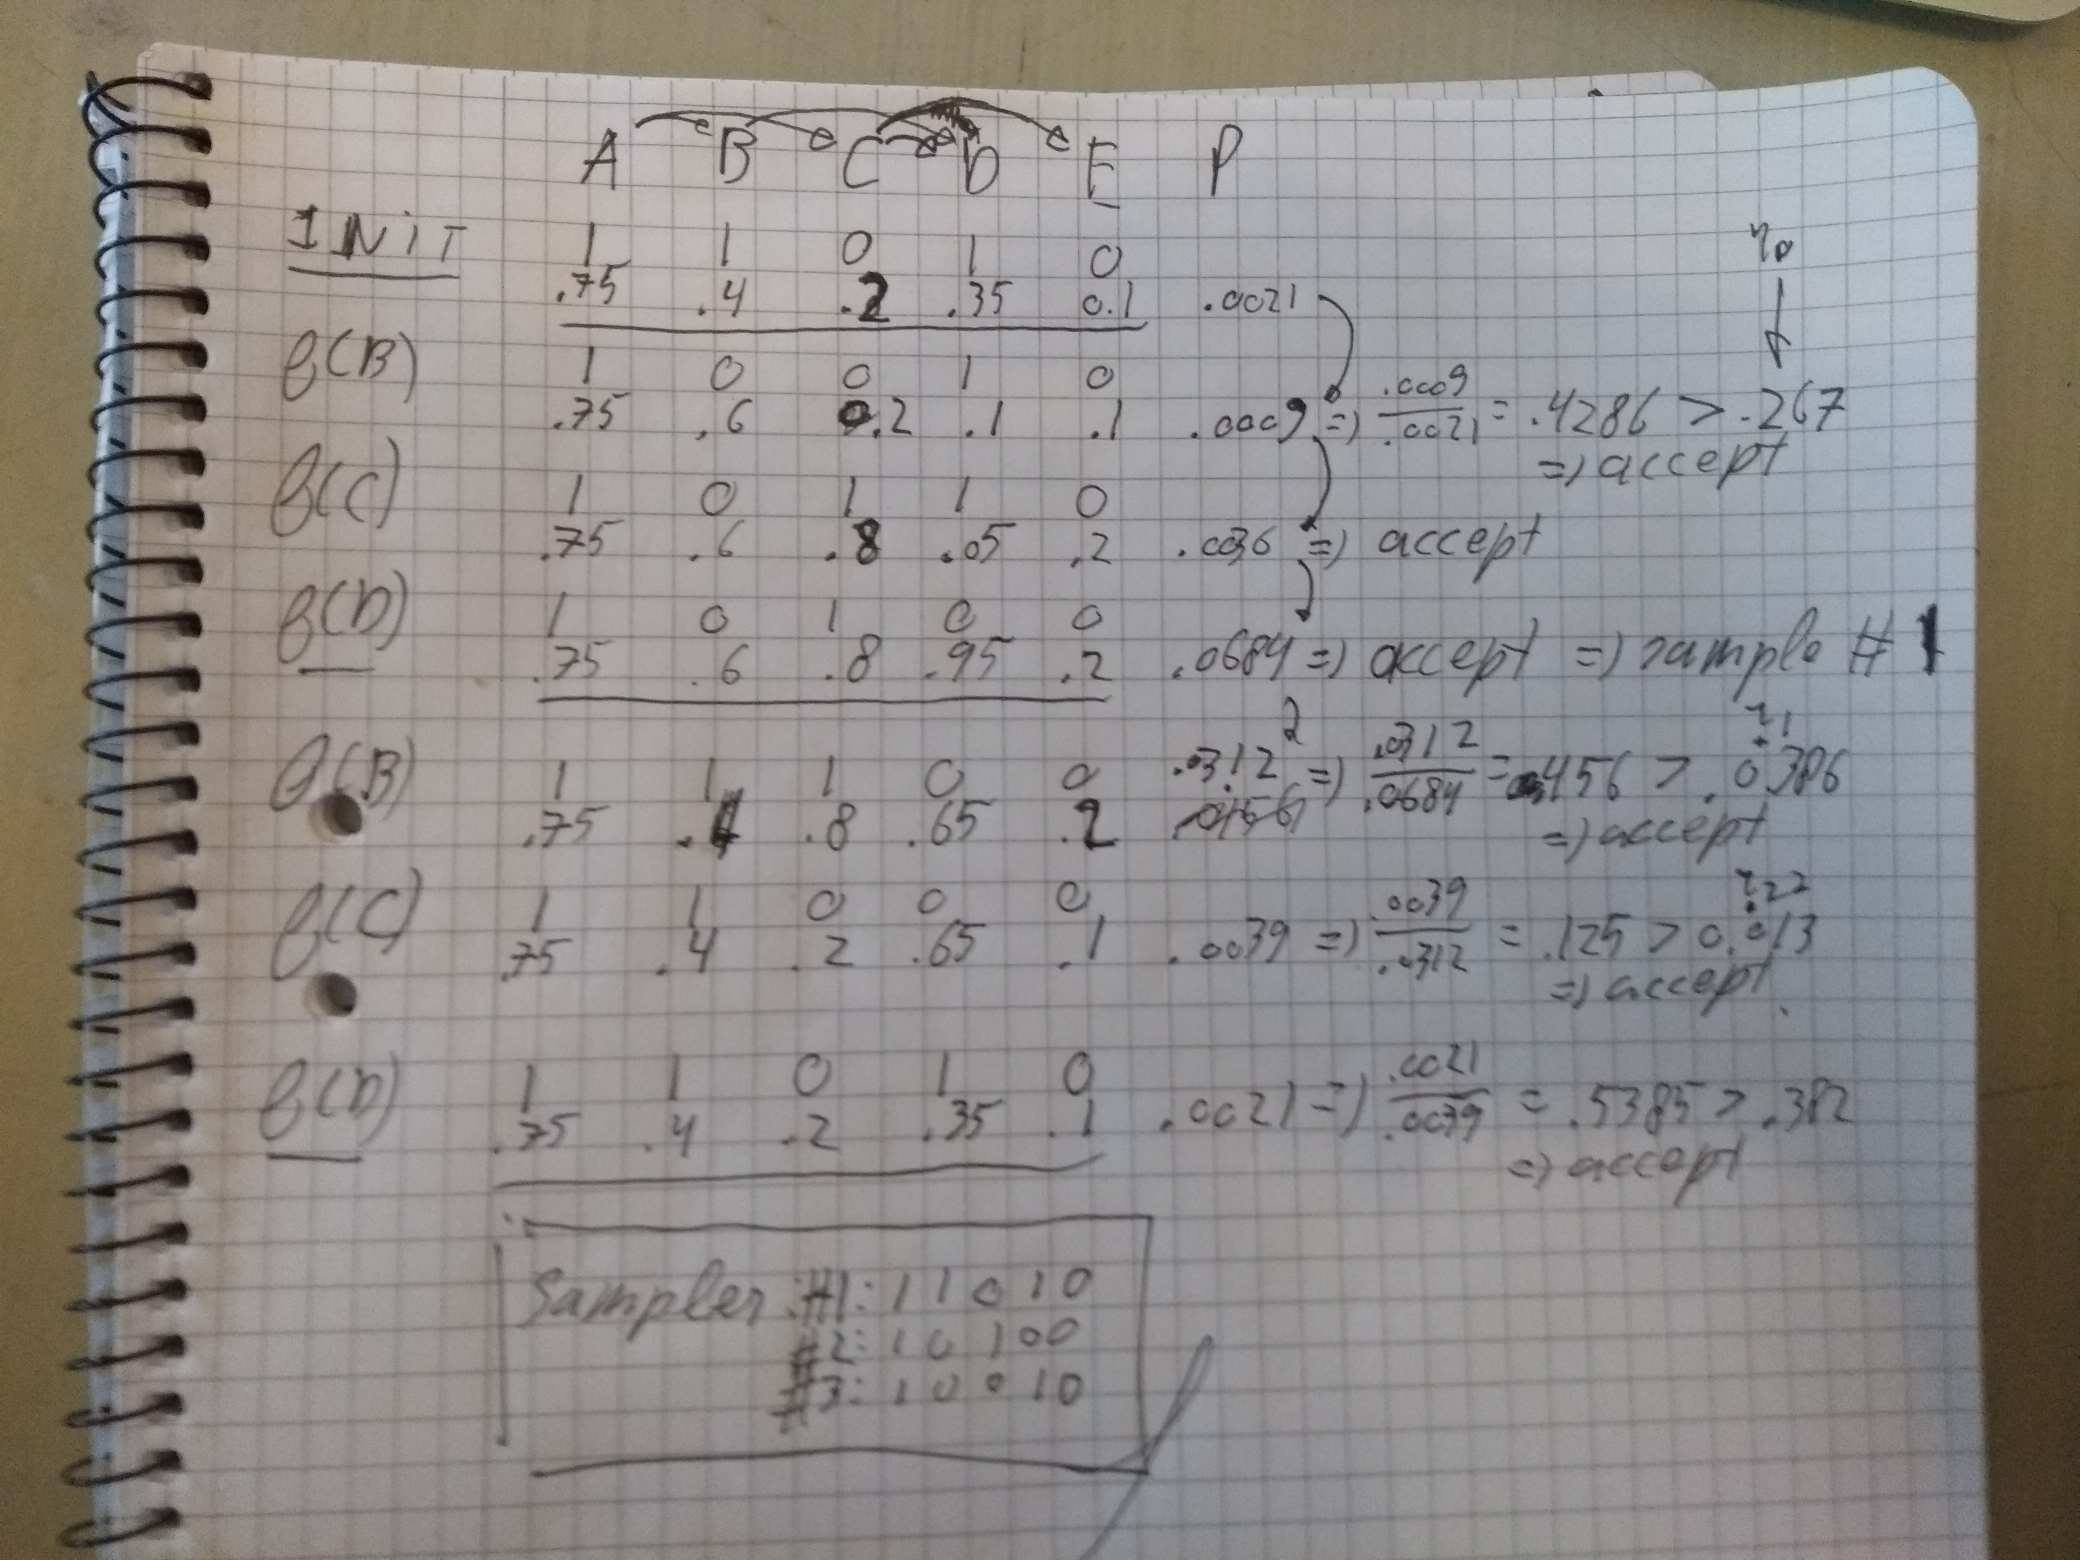 A B C D E P
INIT 1 1 0 1 0
.75 .4 .2 .35 0.1 .0021
f(B) 1 0 0 1 0
.75 .6 0.2 .1 .1 .0009 => .0009 / .0021 = .4286 > .267
=> accept
f(C) 1 0 1 1 0
.75 .6 .8 .05 .2 .0036 => accept
f(D) 1 0 1 0 0
.75 .6 .8 .95 .2 .0684 => accept => sample # 1
f(B) 1 1 1 0 0 .0312 => .0312 / .0684 = .456 > .0386
.75 .4 .8 .65 .2
=> accept
f(C) 1 1 0 0 0
.75 .4 .2 .65 .1 .0039 => .0039 / .0312 = .125 > 0.013
=> accept
f(D) 1 1 0 1 0
.75 .4 .2 .35 .1 .0021 => .0021 / .0039 = .5385 > .382
=> accept
Samples: #1: 1 1 0 1 0
#2: 1 0 1 0 0
#3: 1 0 0 1 0